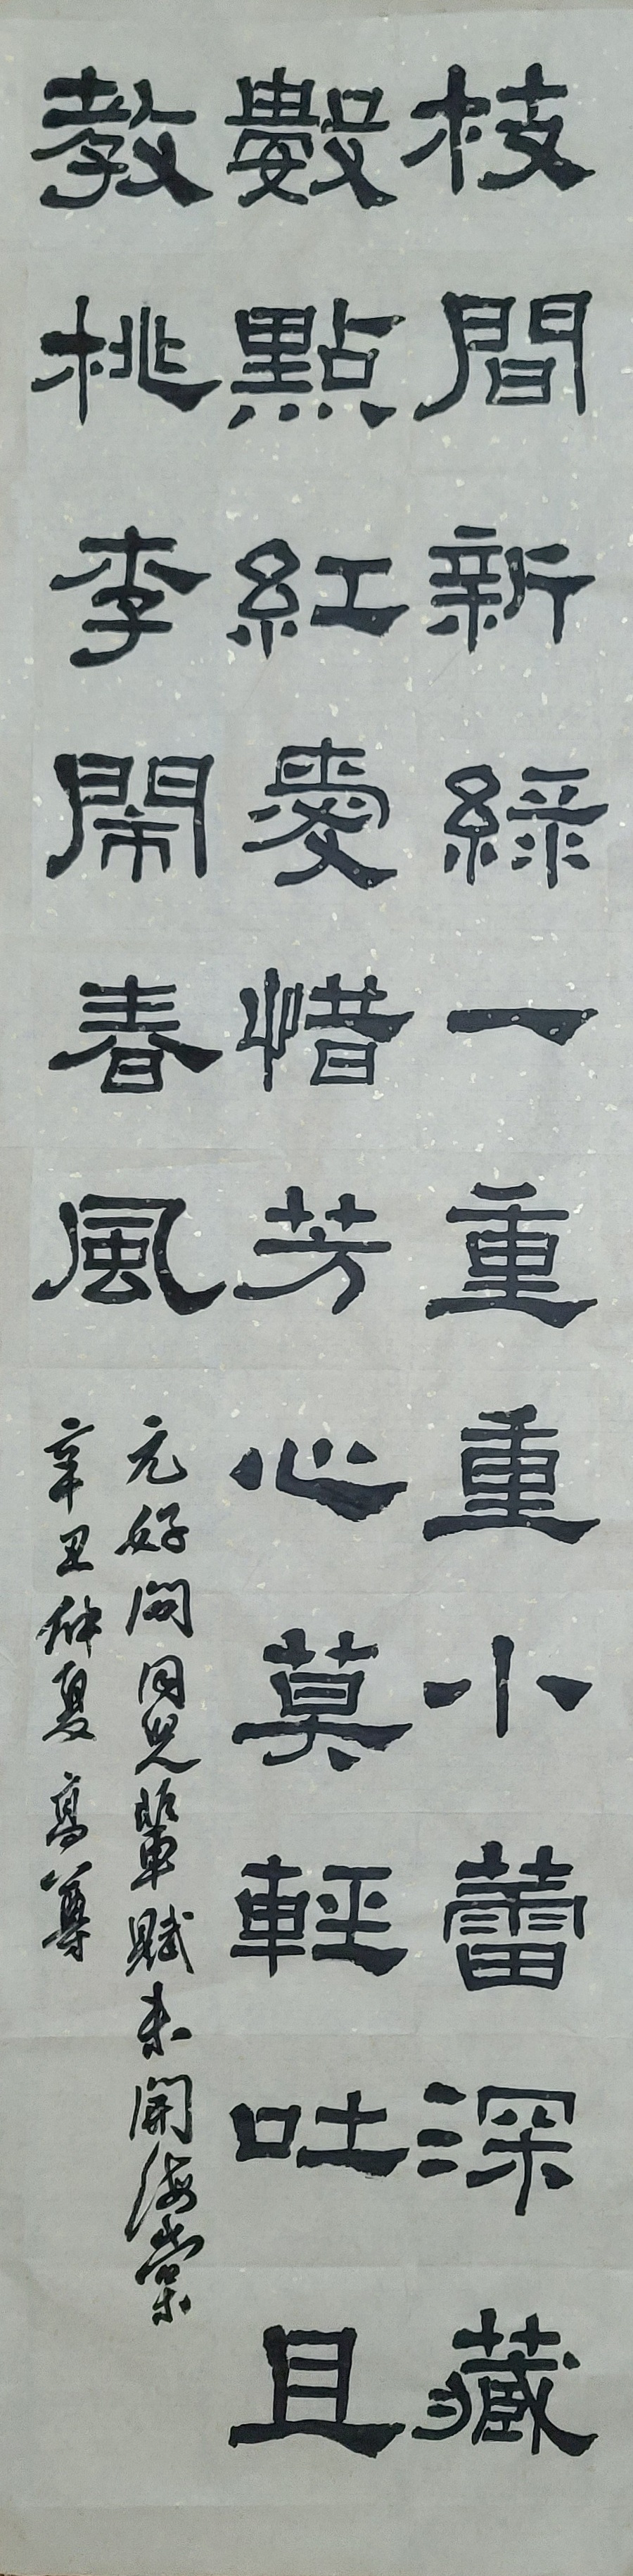 枝間新綠一重重小蕾深藏
數點紅愛惜芳心莫輕吐且
教桃李鬧春風
元好問同兒輩賦未開海棠
辛丑仲夏高尊